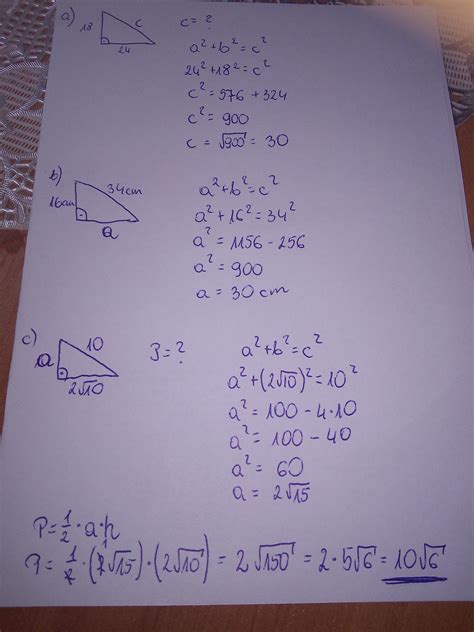 a) 18 c 24 c = ?
a² + b² = c²
24² + 18² = c²
c² = 576 + 324
c² = 900
c = √900 = 30
b) 16cm 34cm a
a² + b² = c²
a² + 16² = 34²
a² = 1156 - 256
a² = 900
a = 30 cm
c) a 10 2√10 P = ?
a² + b² = c²
a² + (2√10)² = 10²
a² = 100 - 4·10
a² = 100 - 40
a² = 60
a = 2√15
P = 1/2 · a · h
P = 1/2 · (2√15) · (2√10) = 2√150 = 2 · 5√6 = 10√6